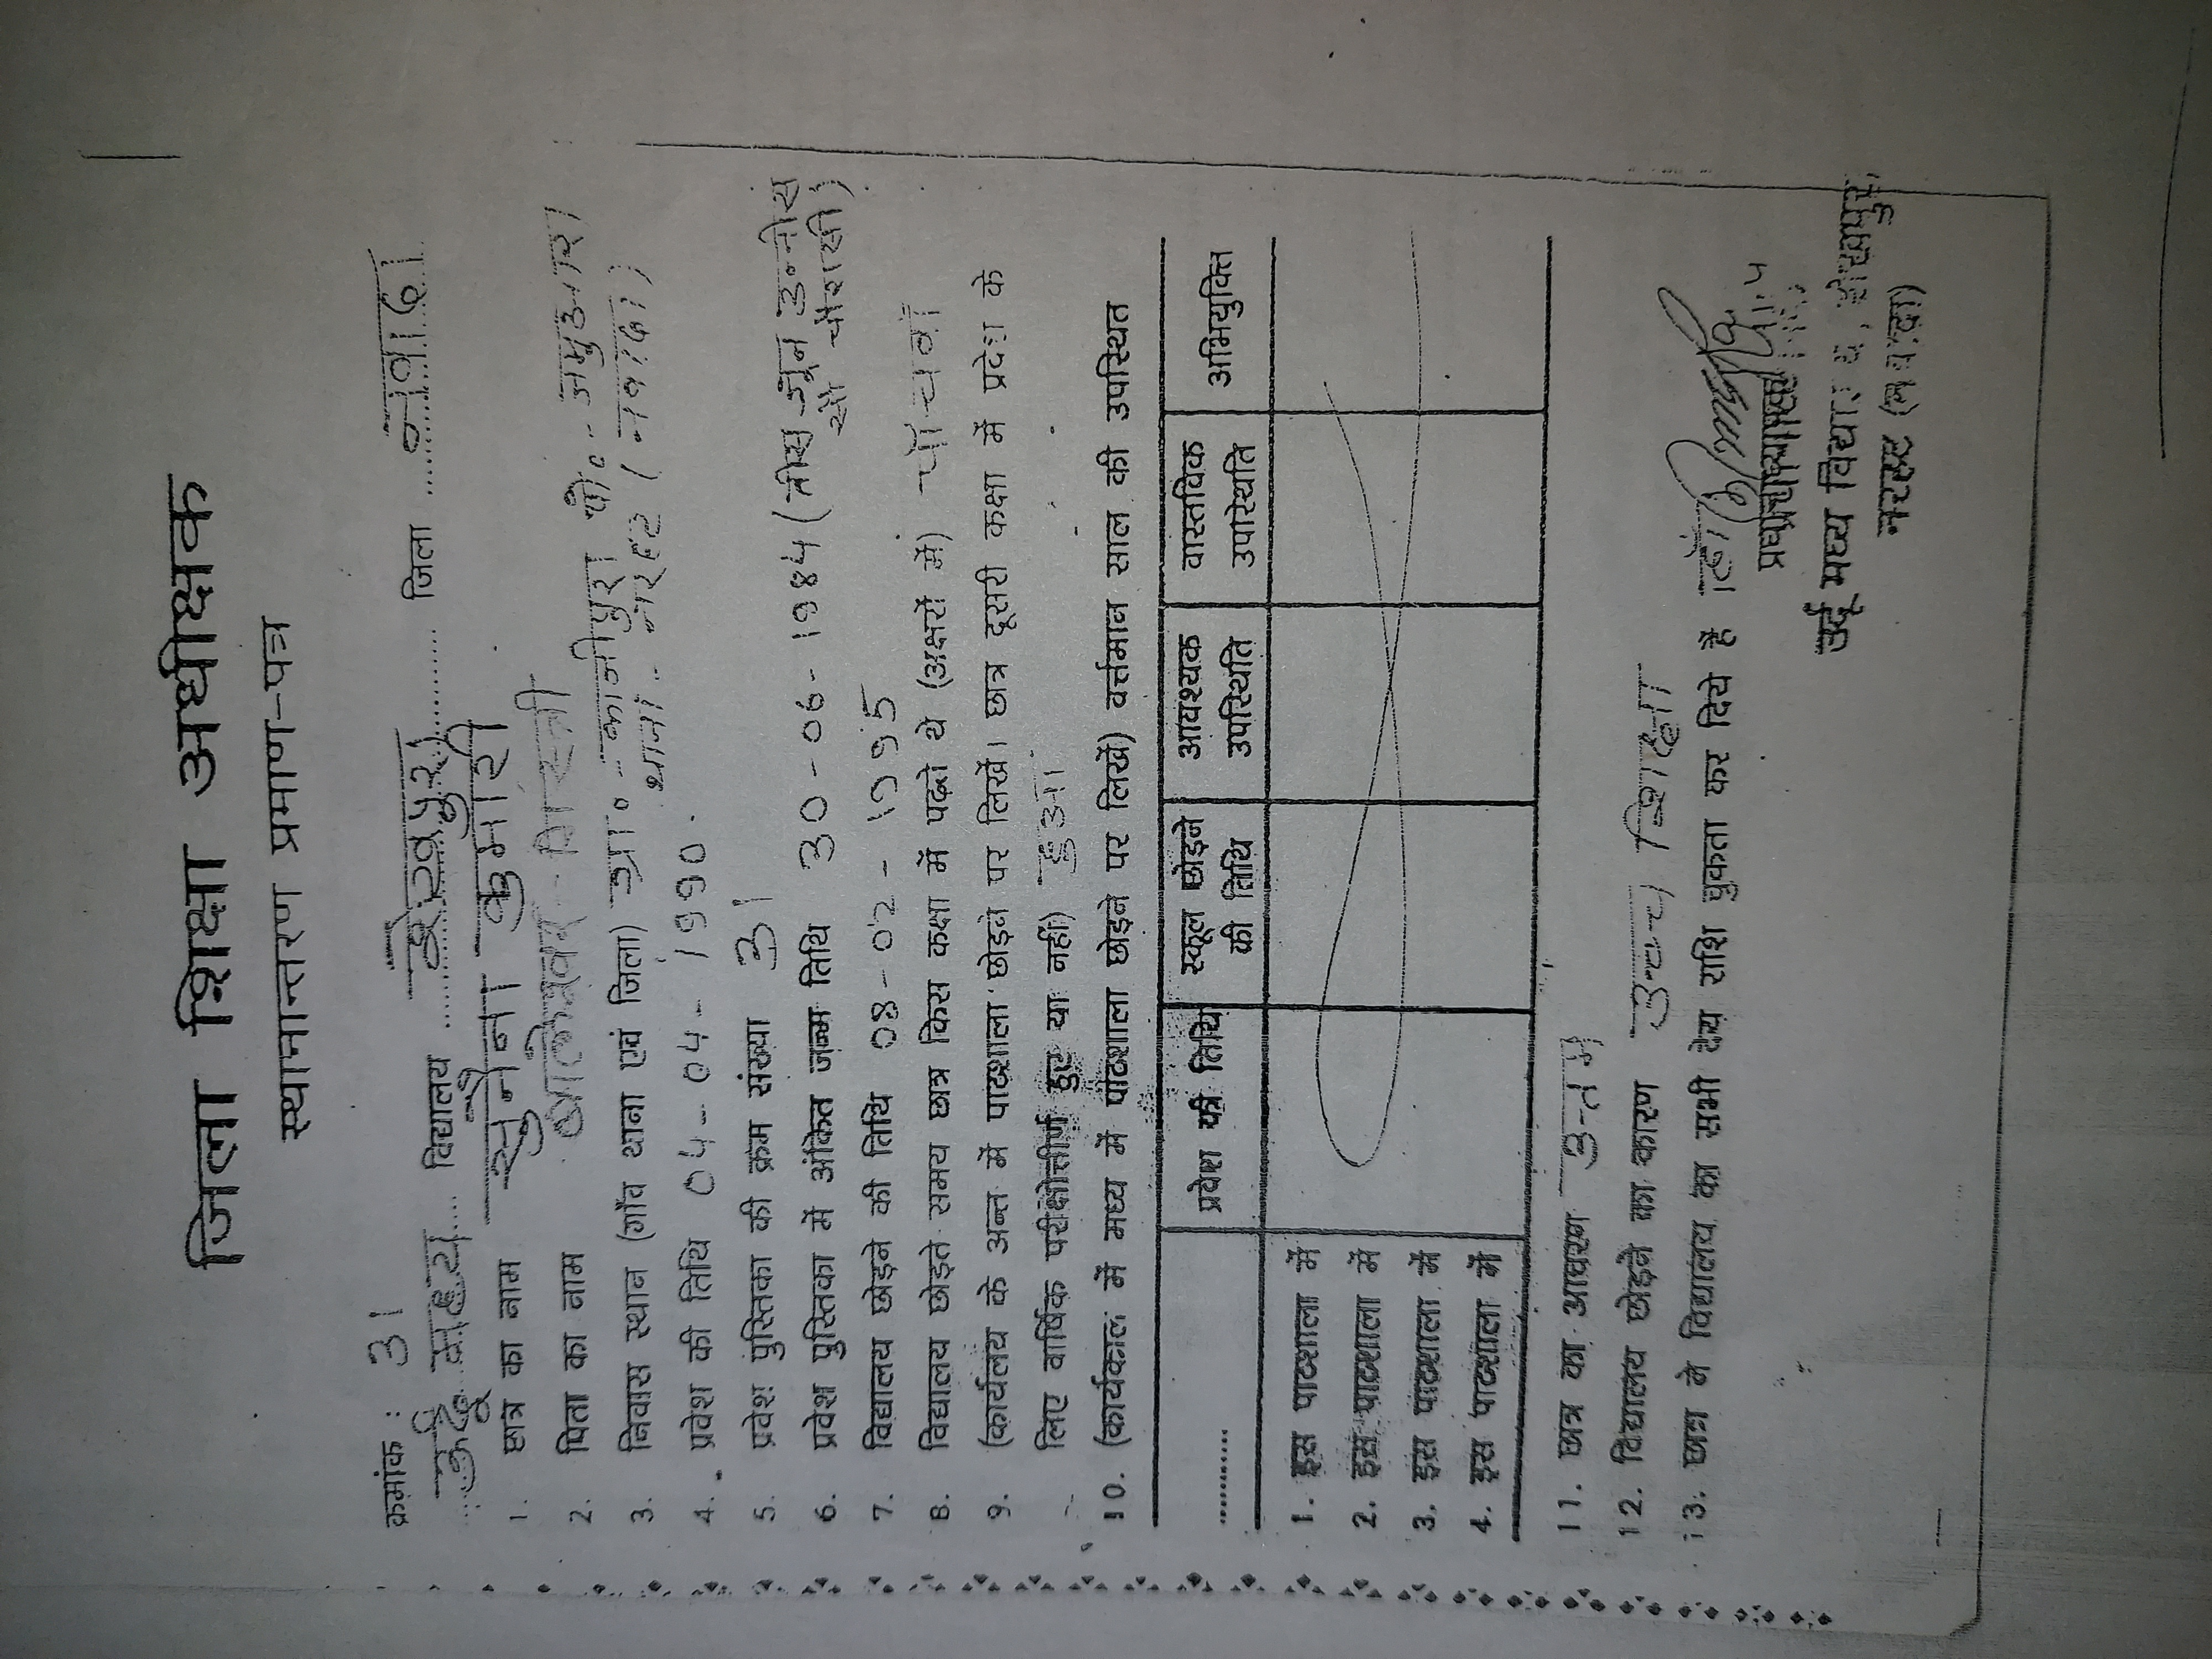 जिला शिक्षा अधीक्षक
स्थानान्तरण प्रमाण-पत्र
क्रमांक : 31
उर्दू मध्य विद्यालय शेखपुरा जिला नवादा
1. छात्र का नाम सुनैना कुमारी
2. पिता का नाम बालेश्वर मिस्त्री
3. निवास स्थान (गाँव थाना एवं जिला) ग्रा॰ - काजीपुरा पो॰ -
थाना - नरहट (नवादा)
4. प्रवेश की तिथि 04-04-1990
5. प्रवेश पुस्तिका की क्रम संख्या 31
6. प्रवेश पुस्तिका में अंकित जन्म तिथि 30-06-1984 (तीस जून उन्नीस
सौ चौरासी)
7. विद्यालय छोड़ने की तिथि 08-02-1995
8. विद्यालय छोड़ते समय छात्र किस कक्षा में पढ़ते थे (अक्षरों में) पाँचवाँ
9. (कार्यलय के अन्त में पाठशाला छोड़ने पर लिखें। छात्र दूसरी कक्षा में प्रवेश के
लिए वार्षिक परीक्षोत्तीर्ण हुए या नहीं) हुआ।
10. (कार्यकाल में मध्य में पाठशाला छोड़ने पर लिखें) वर्त्तमान साल की उपस्थित
.......... प्रवेश की तिथि स्कूल छोड़ने की तिथि आवश्यक उपस्थिति वास्तविक उपस्थिति अभियुक्ति
1. इस पाठशाला में
2. इस पाठशाला में
3. इस पाठशाला में
4. इस पाठशाला में
11. छात्र का आचरण उत्तम
12. विद्यालय छोड़ने का कारण उच्च शिक्षा
13. छात्र ने विद्यालय के सभी देय राशि चुकता कर दिये हैं।
प्रधानाध्यापक
उर्दू मध्य विद्यालय, शेखपुरा,
नरहट (नवादा)